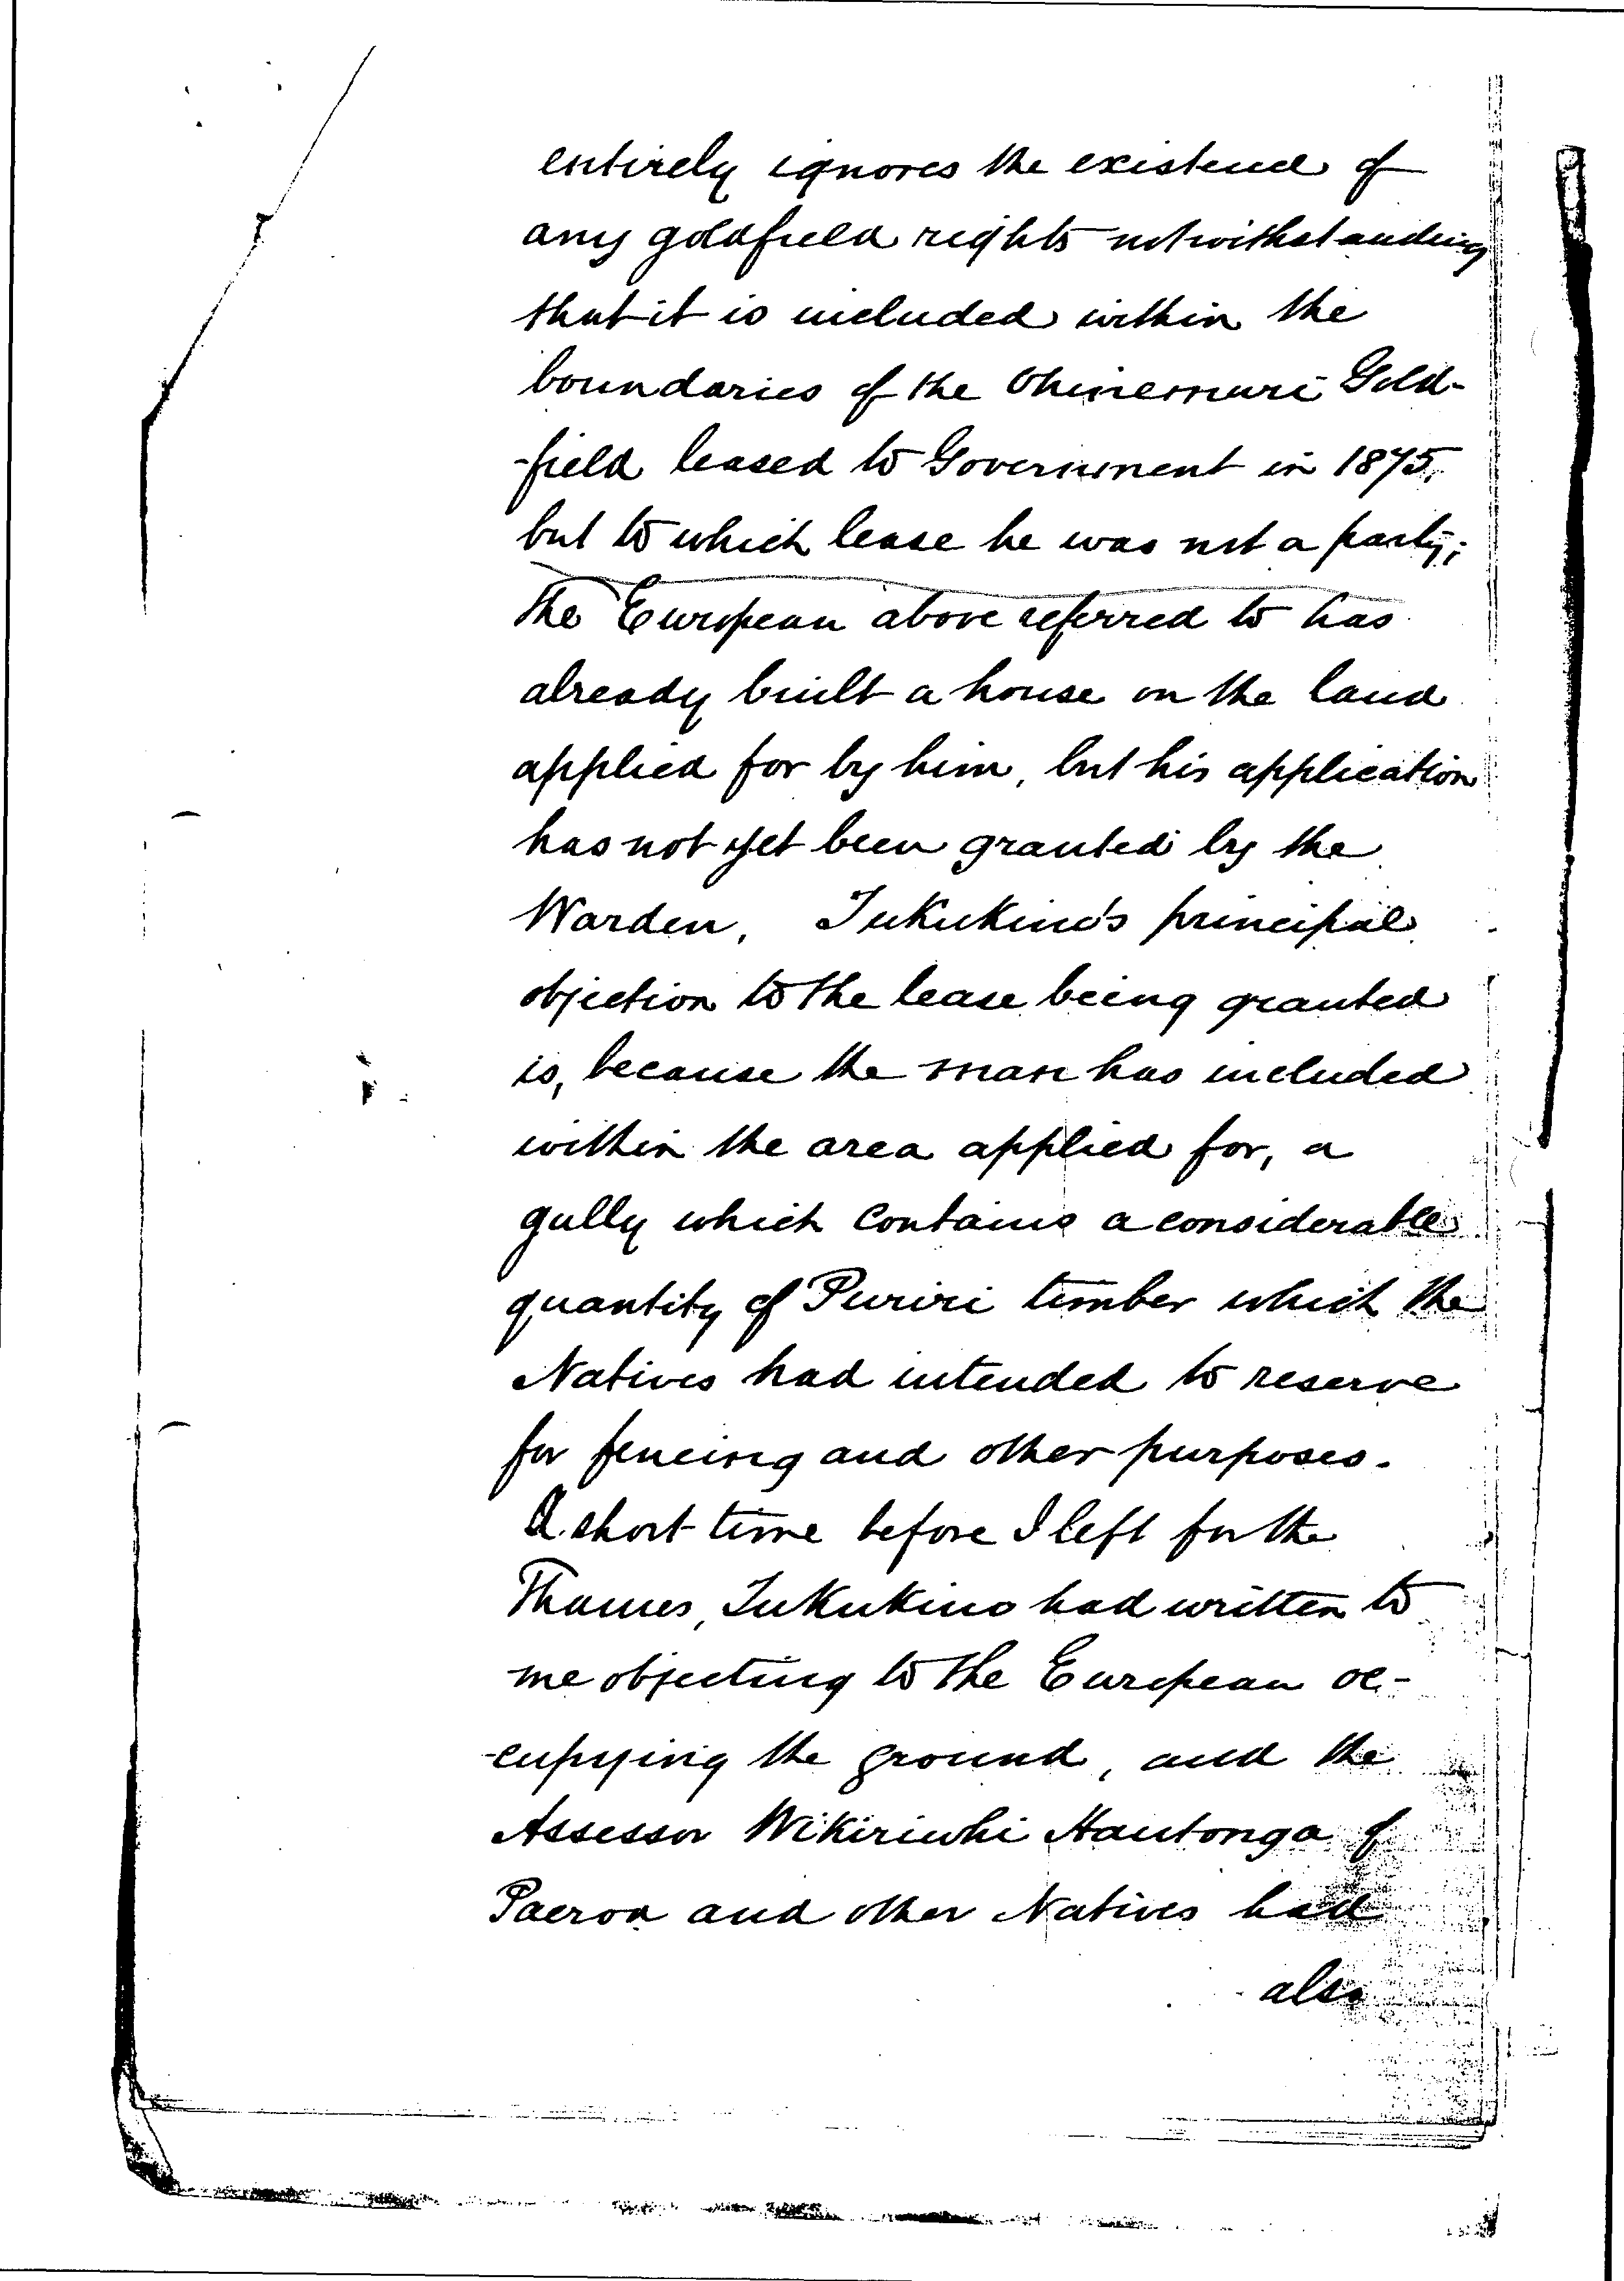 entirely ignores the existence of
any goldfield rights notwithstanding
that it is included within the
boundaries of the Ohinemuri Gold-
-field leased to Government in 1875,
but to which lease he was not a party;
The European above referred to has
already built a house on the land
applied for by him, but his application
has not yet been granted by the
Warden, Tukukino's principal
objection to the lease being granted
is, because the man has included
within the area applied for, a
gully which contains a considerable
quantity of Puriri timber which the
Natives had intended to reserve
for fencing and other purposes.
A short time before I left for the
Thames, Tukukino had written to
me objecting to the European oc-
-cupying the ground, and the
Assessor Wikiriwhi Hautonga of
Paeroa and other Natives had
also